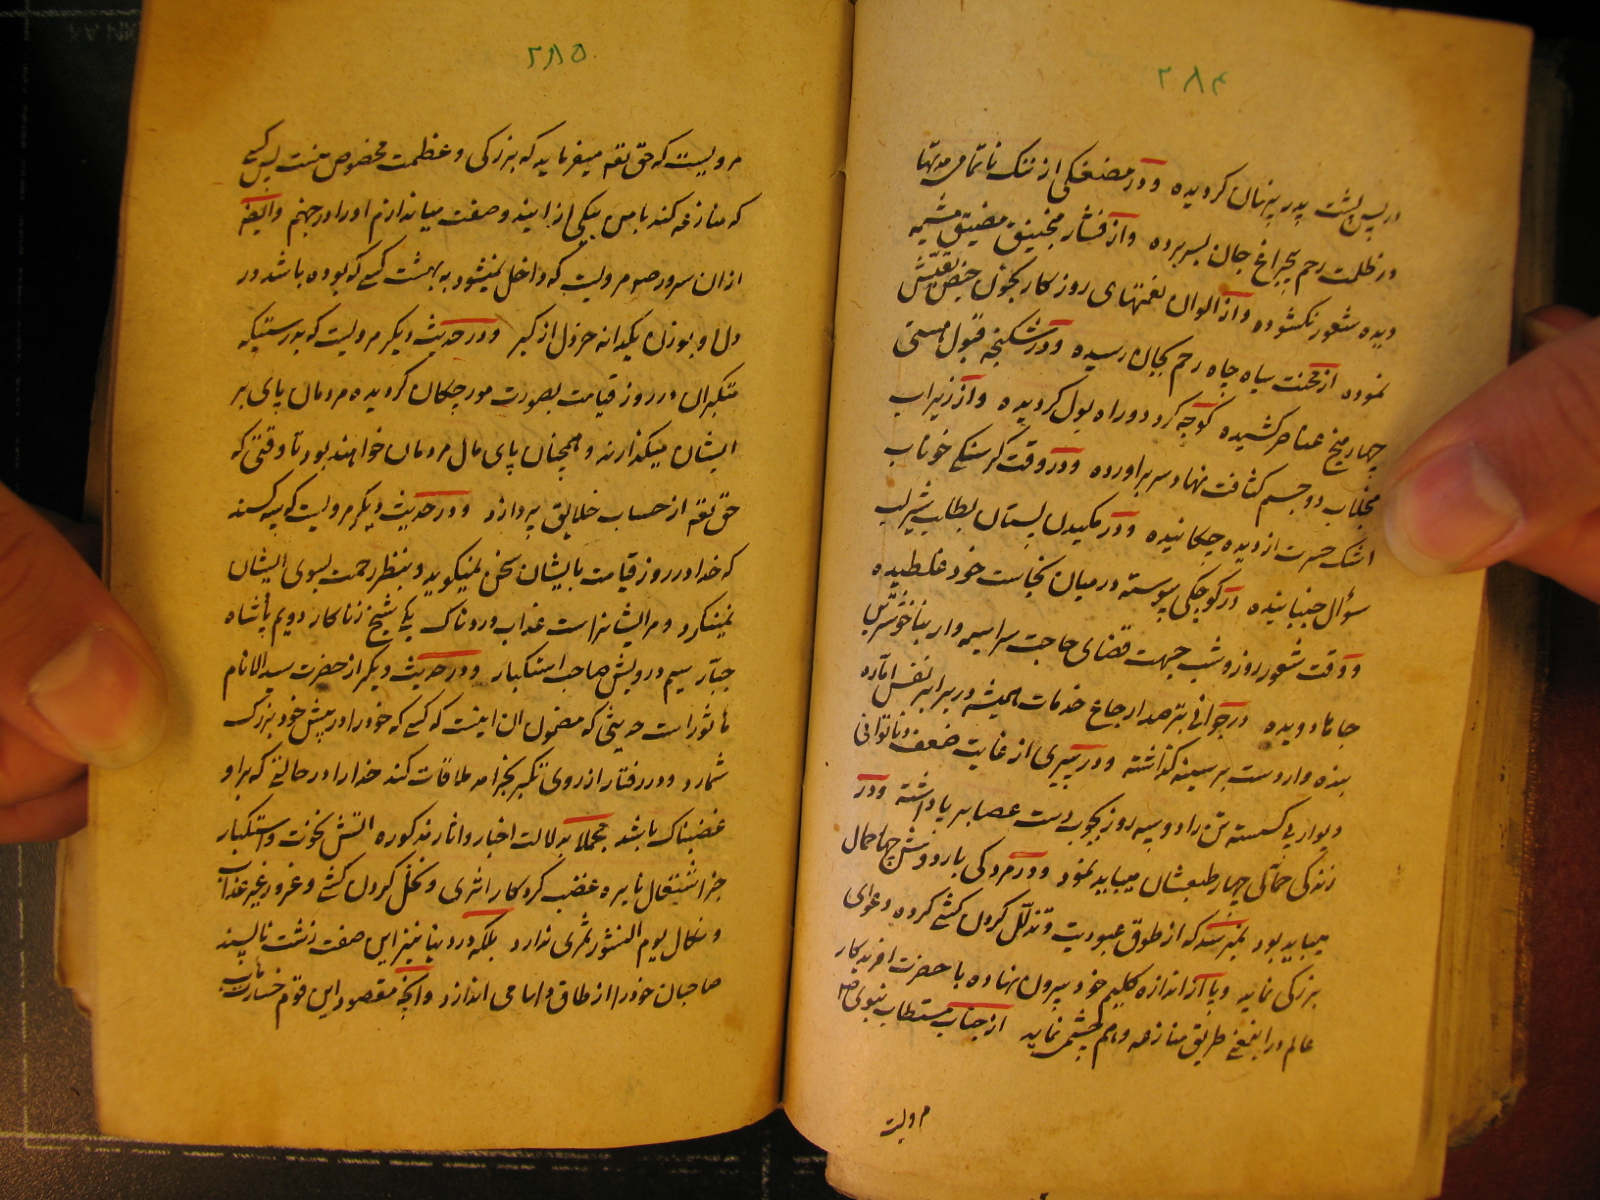 ۲۸۴
در پس پشت پدر پنهان گردیده و در مضغگی از ننگ ناتمامی مدتها
در ظلمت رحم بیچراغ جان بسر برده و از فشار منجنیق مضیق مشیمه
دیده شعور نکشوده و از الوان نعمتهای روزگار بخون حیض تعیش
نموده از محنت سیاه چاه رحم بجان رسیده و در شکنجه قبول هستی
چهار میخ عناصر کشیده کوچه کرد دو راه بول کردیده و از زیراب
منجلاب دو جسم کثافت نهاد سر براورده و در وقت کرسنکی خوناب
اشک حسرت از دیده چکانیده و در مکیدن پستان بطلب شیر لب
سؤال جنبانیده در کوچکی پیوسته در میان نجاست خود غلطیده
و وقت شعور روز و شب جهت قضای حاجت سراسیمه وار بناخوشترین
جاها دویده در جوانی بترصد ارجاع خدمات همیشه در برابر نفس اماره
بنده وار دست بر سینه گذاشته و در پیری از غایت ضعف و ناتوانی
دیواری کسسته تن را دو سیه روز بچوب دست عصا بر پا داشته و در
زندکی حمالی چهار طبعشان میباید نمود و در مردکی بار دوش چهار حمال
میباید بود نمیرسد که از طوق عبودیت و تذلل کردن کشی کرده دعوای
بزرکی نماید و پا از اندازه کلیم خود بیرون نهاده با حضرت افریدکار
عالم در اینمعنی طریق منازعه و هم چشمی نماید از جناب مستطاب نبوی ص
مرویست
۲۸۵
مرویست که حق تعه میفرماید که بزرکی و عظمت مخصوص منست پس کسی
که منازعه کند با من بیکی از ایندو صفت میاندازم او را در جهنم و ایضه
از ان سرور صو مرویست که داخل نمیشود به بهشت کسی که بوده باشد در
دل او بوزن یکدانه خردل از کبر و در حدیث دیکر مرویست که بدرستیکه
متکبران در روز قیامت بصورت مورچکان کردیده مردمان پای بر
ایشان میکذارند و همچنان پای مال مردمان خواهند بود تا وقتی که
حق تعه از حساب خلایق پردازد و در حدیث دیکر مرویست که سه کسند
که خدا در روز قیامت با ایشان سخن نمیکوید و بنظر رحمت بسوی ایشان
نمینکرد و مر ایشانراست عذاب دردناک یکی شیخ زناکار دویم پادشاه
جبار سیم درویش صاحب استکبار و در حدیث دیکر از حضرت سید الانام
ماثور است حدیثی که مضمون ان اینست که کسی که خود را در پیش خود بزرک
شمارد و در رفتار از روی تکبر بخرامد ملاقات کند خدا را در حالتی که بر او
غضبناک باشد مجملا به دلالت اخبار و اثار مذکوره اتش نخوت و استکبار
جز اشتعال نایره غضب کردکار اثری و نخل کردن کشی و غرور غیر عذاب
و نکال یوم النشور ثمری ندارد بلکه در دنیا نیز این صفت زشت ناپسند
صاحبان خود را از طاق دلها می اندازد و انچه مقصود این قوم خسارت ماب